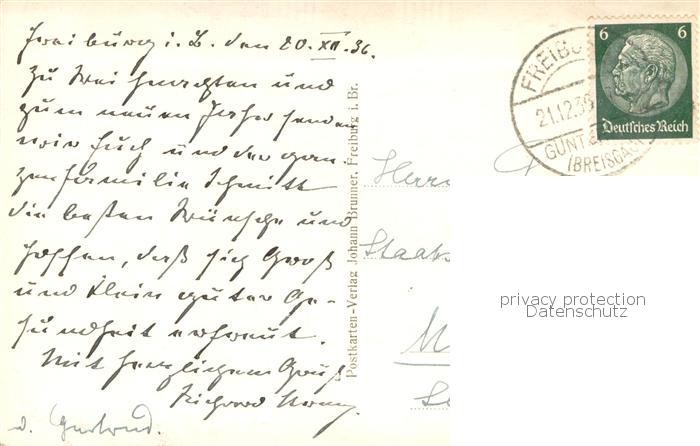 Freiburg i. B. den 20. XII. 36.
Zu Weihnachten und
zum neuen Jahr senden
wir Euch und der gan-
zen Familie Schmitt
die besten Wünsche und
hoffen, daß sich Groß
und Klein guter Ge-
sundheit erfreut.
Mit herzlichem Gruß
Richard
u. Gertrud.
Postkarten-Verlag Johann Brunner, Freiburg i. Br.
Herrn
Staats
FREIBU
21.12.36
GÜNT
(BREISGAU)
6 6
Deutsches Reich
privacy protection
Datenschutz